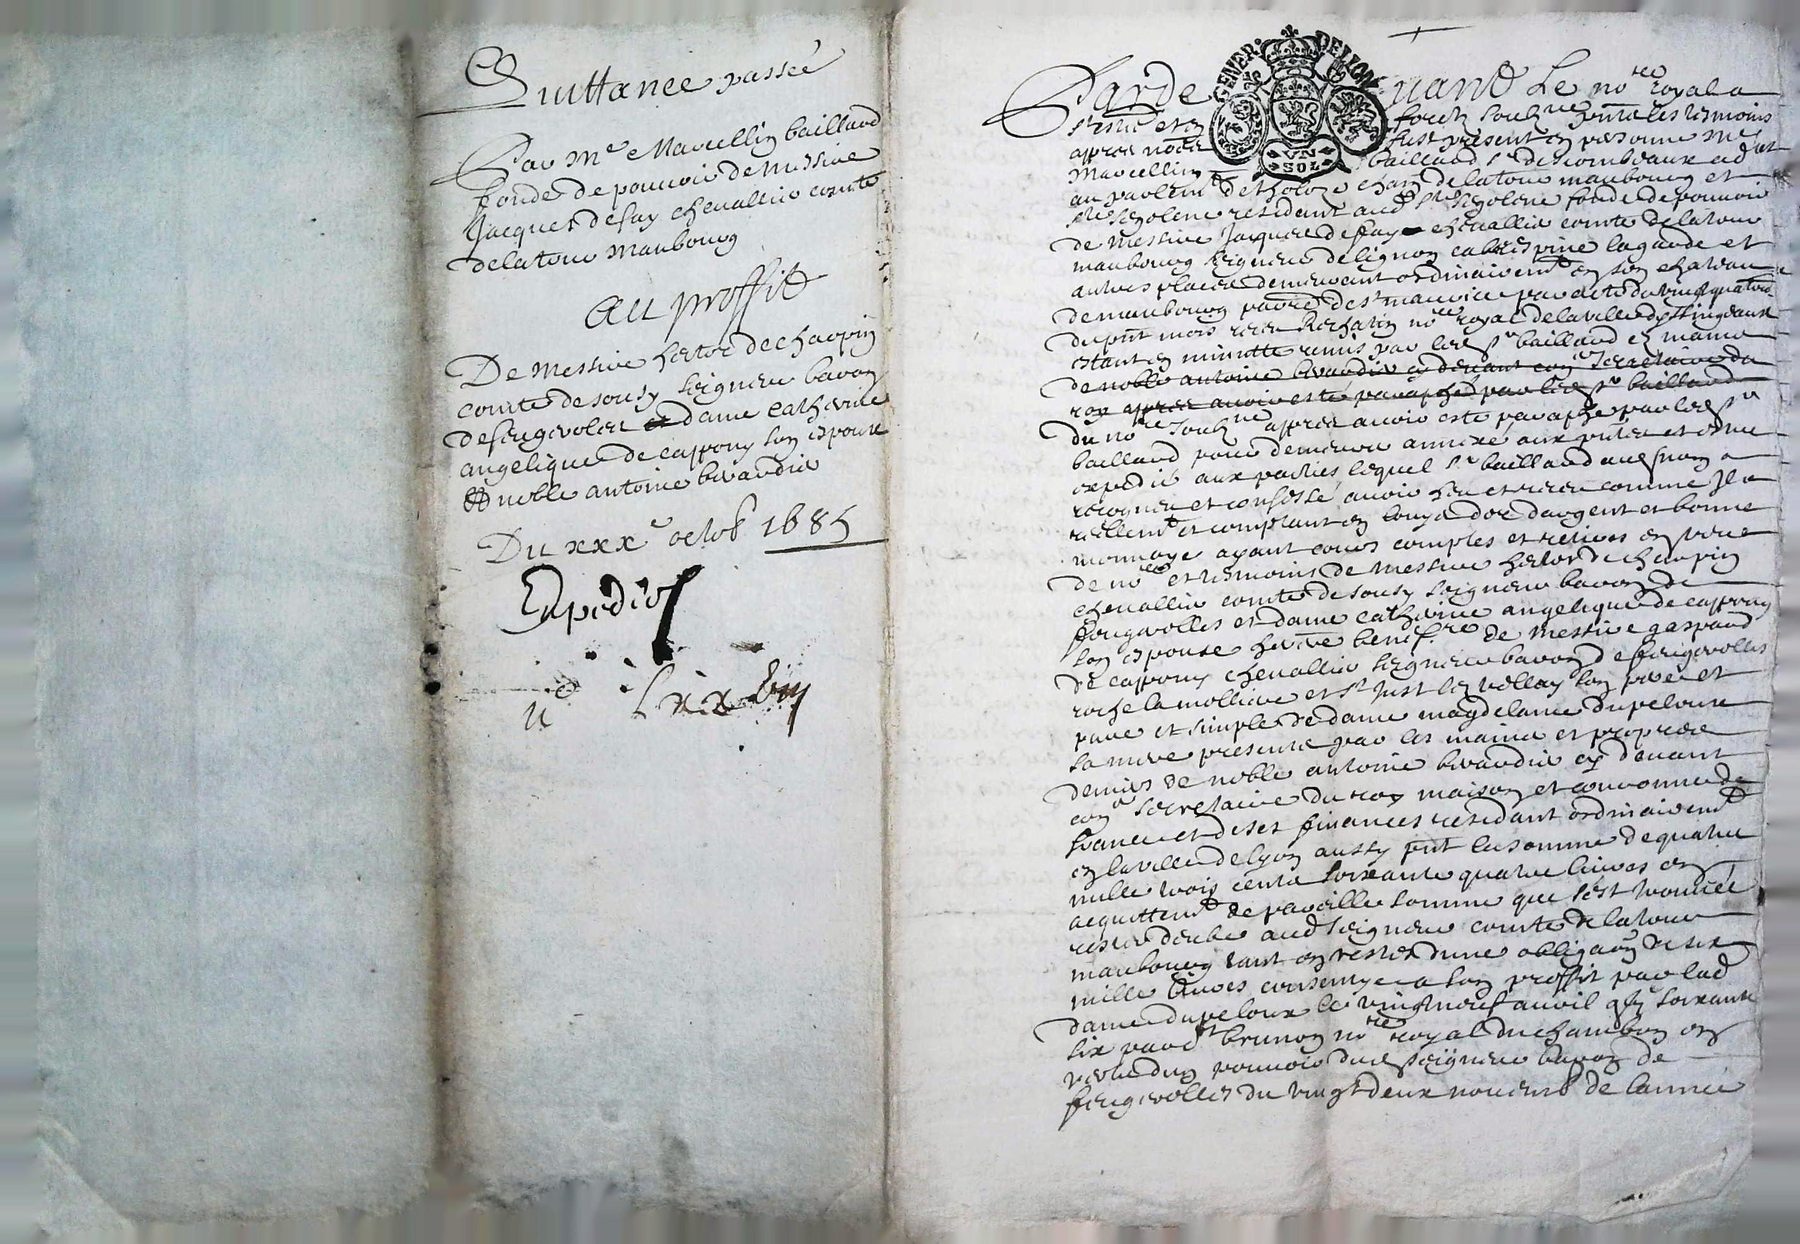 Quittance passée
Par Me Marcellin baillard
fondé de pouvoir de messire
Jacques defay chevallier comte
delatour maubourg
au proffit
De messire hector de charpin
comte de souzy seigneur baron
defeugerolles et dame catherine
angelique de cappony son espouse
noble antoine
Du xxxe octob 1685
Expedié
GENER. DE LYON
VN SOL
Par devant Le nore royal a
st et en forest soubne les tesmoins
apres només fust present en personne me
Marcellin baillard sr de adat
au parlemt de tholoze de latour maubourg et
ste Segolene residant aud ste Segolene fondé de pouvoir
de messire Jacques de fay chevallier comte de latour
maubourg seigneur de lignon cabrespine lagarde et
autres places demeurant ordinairemt en son chateau
de maubourg parre de st maurice par acte du vingt quatre
du pnt mois receu nore royal de la ville dyssingeaux
estant en minutte remis par led sr baillard es mains
de noble antoine cy devant conr secretaire du
roy apres avoir esté paraphé par led sr baillard
du nore soubne apres avoir esté paraphé par led sr
baillard pour demeurer annexé aux et estre
expedié aux parties lequel sr baillard aud nom a
recogneu et confessé avoir heu et receu comme Il a
reellemt et comptant en louys dor dargent et bonne
monnoye ayant cours comptés et retirés en veue
de nore et tesmoins de messire hector de charpin
chevallier comte de souzy seigneur baron de
feugerolles et dame catherine angelique de cappony
son espouse de messire gaspard
de cappony chevallier seigneur baron de feugerolles
roche la molliere et st Just les vellay son pere et
pure et simple de dame magdelaine dupeloux
sa mere presente par les mains et propres
deniers de noble antoine cy devant
conr secretaire du roy maison et couronne de
france et de ses finances residant ordinairemt
en la ville de lyon aussy pnt la somme de quatre
mille trois cents soixante quatre livres en
acquittemt de pareille somme que sest trouvée
rester deube aud seigneur comte de latour
maubourg tant en restes dune obligaon de six
mille livres consentye a son proffit par lad
dame dupeloux le vingt neuf avril soixante
six pard brunon nore royal du chambon en
vertu dun pouvoir dud seigneur baron de
feugerolles du vingt deux novemb de lannée